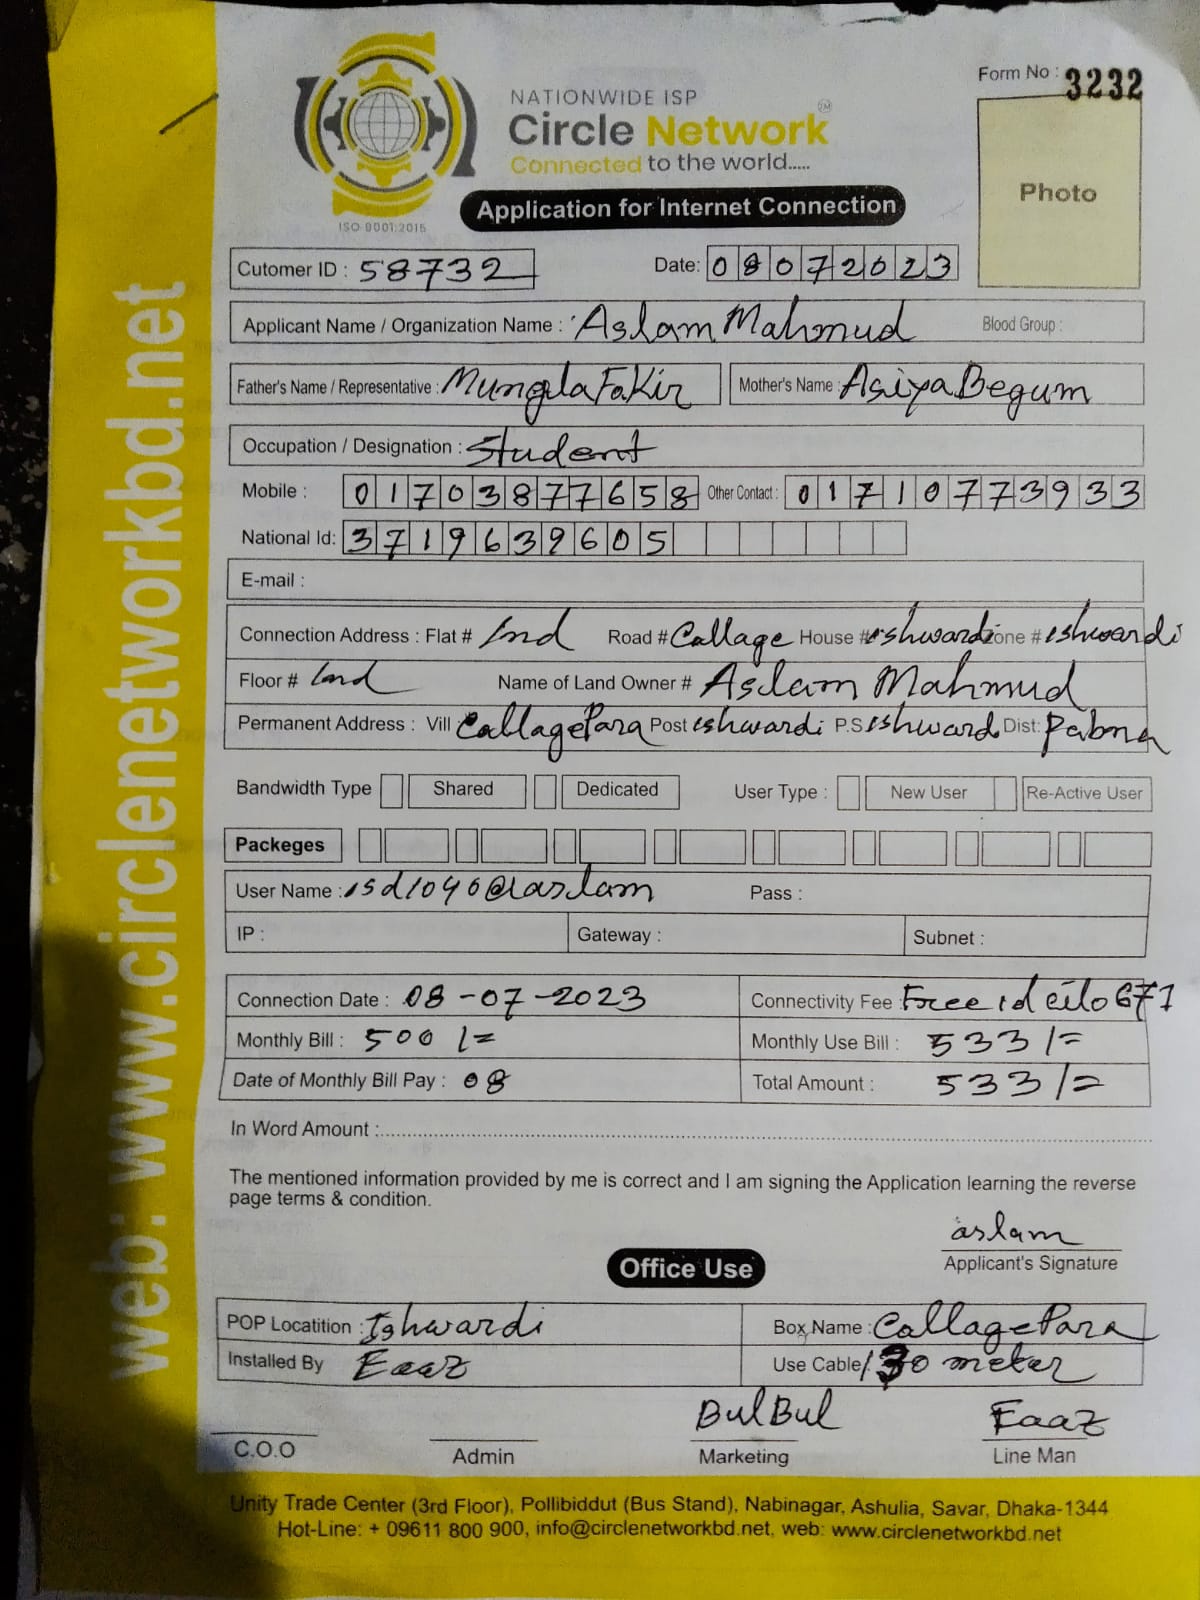 Form No : 3232
NATIONWIDE ISP
Circle Network TM
Connected to the world.....
ISO 9001:2015
Application for Internet Connection
Photo
Cutomer ID : 58732 Date: 08072023
Applicant Name / Organization Name : Aslam Mahmud Blood Group :
Father's Name / Representative : Mungla Fakir Mother's Name : Asiya Begum
Occupation / Designation : Student
Mobile : 01703877658 Other Contact : 01710773933
National Id: 3719639605
E-mail :
Connection Address : Flat # Road # Callage House # ishwardi Zone # ishwardi
Floor # Name of Land Owner # Aslam Mahmud
Permanent Address : Vill Callage Para Post ishwardi P.S ishwardi Dist: Pabna
Bandwidth Type Shared Dedicated User Type : New User Re-Active User
Packeges
User Name : isd1040@aslam Pass :
IP : Gateway : Subnet :
Connection Date : 08-07-2023 Connectivity Fee : Free id 671
Monthly Bill : 500/= Monthly Use Bill : 533/=
Date of Monthly Bill Pay : 08 Total Amount : 533/=
In Word Amount :
The mentioned information provided by me is correct and I am signing the Application learning the reverse
page terms & condition.
aslam
Applicant's Signature
Office Use
POP Locatition : Ishwardi Box Name : Callage Para
Installed By Eaaz Use Cable 130 meter
BulBul Eaaz
C.O.O Admin Marketing Line Man
Unity Trade Center (3rd Floor), Pollibiddut (Bus Stand), Nabinagar, Ashulia, Savar, Dhaka-1344
Hot-Line: + 09611 800 900, info@circlenetworkbd.net, web: www.circlenetworkbd.net
web: www.circlenetworkbd.net